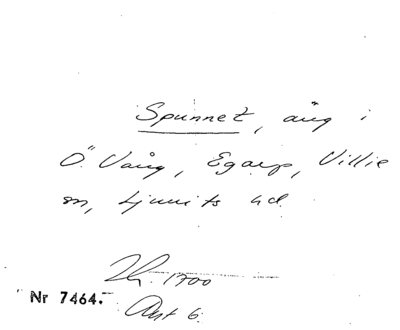 Spunnet, äng i
Ö. Vång, Egarp, Villie
sn, Ljunits hd.
1700
Nr 7464.
Akt 6